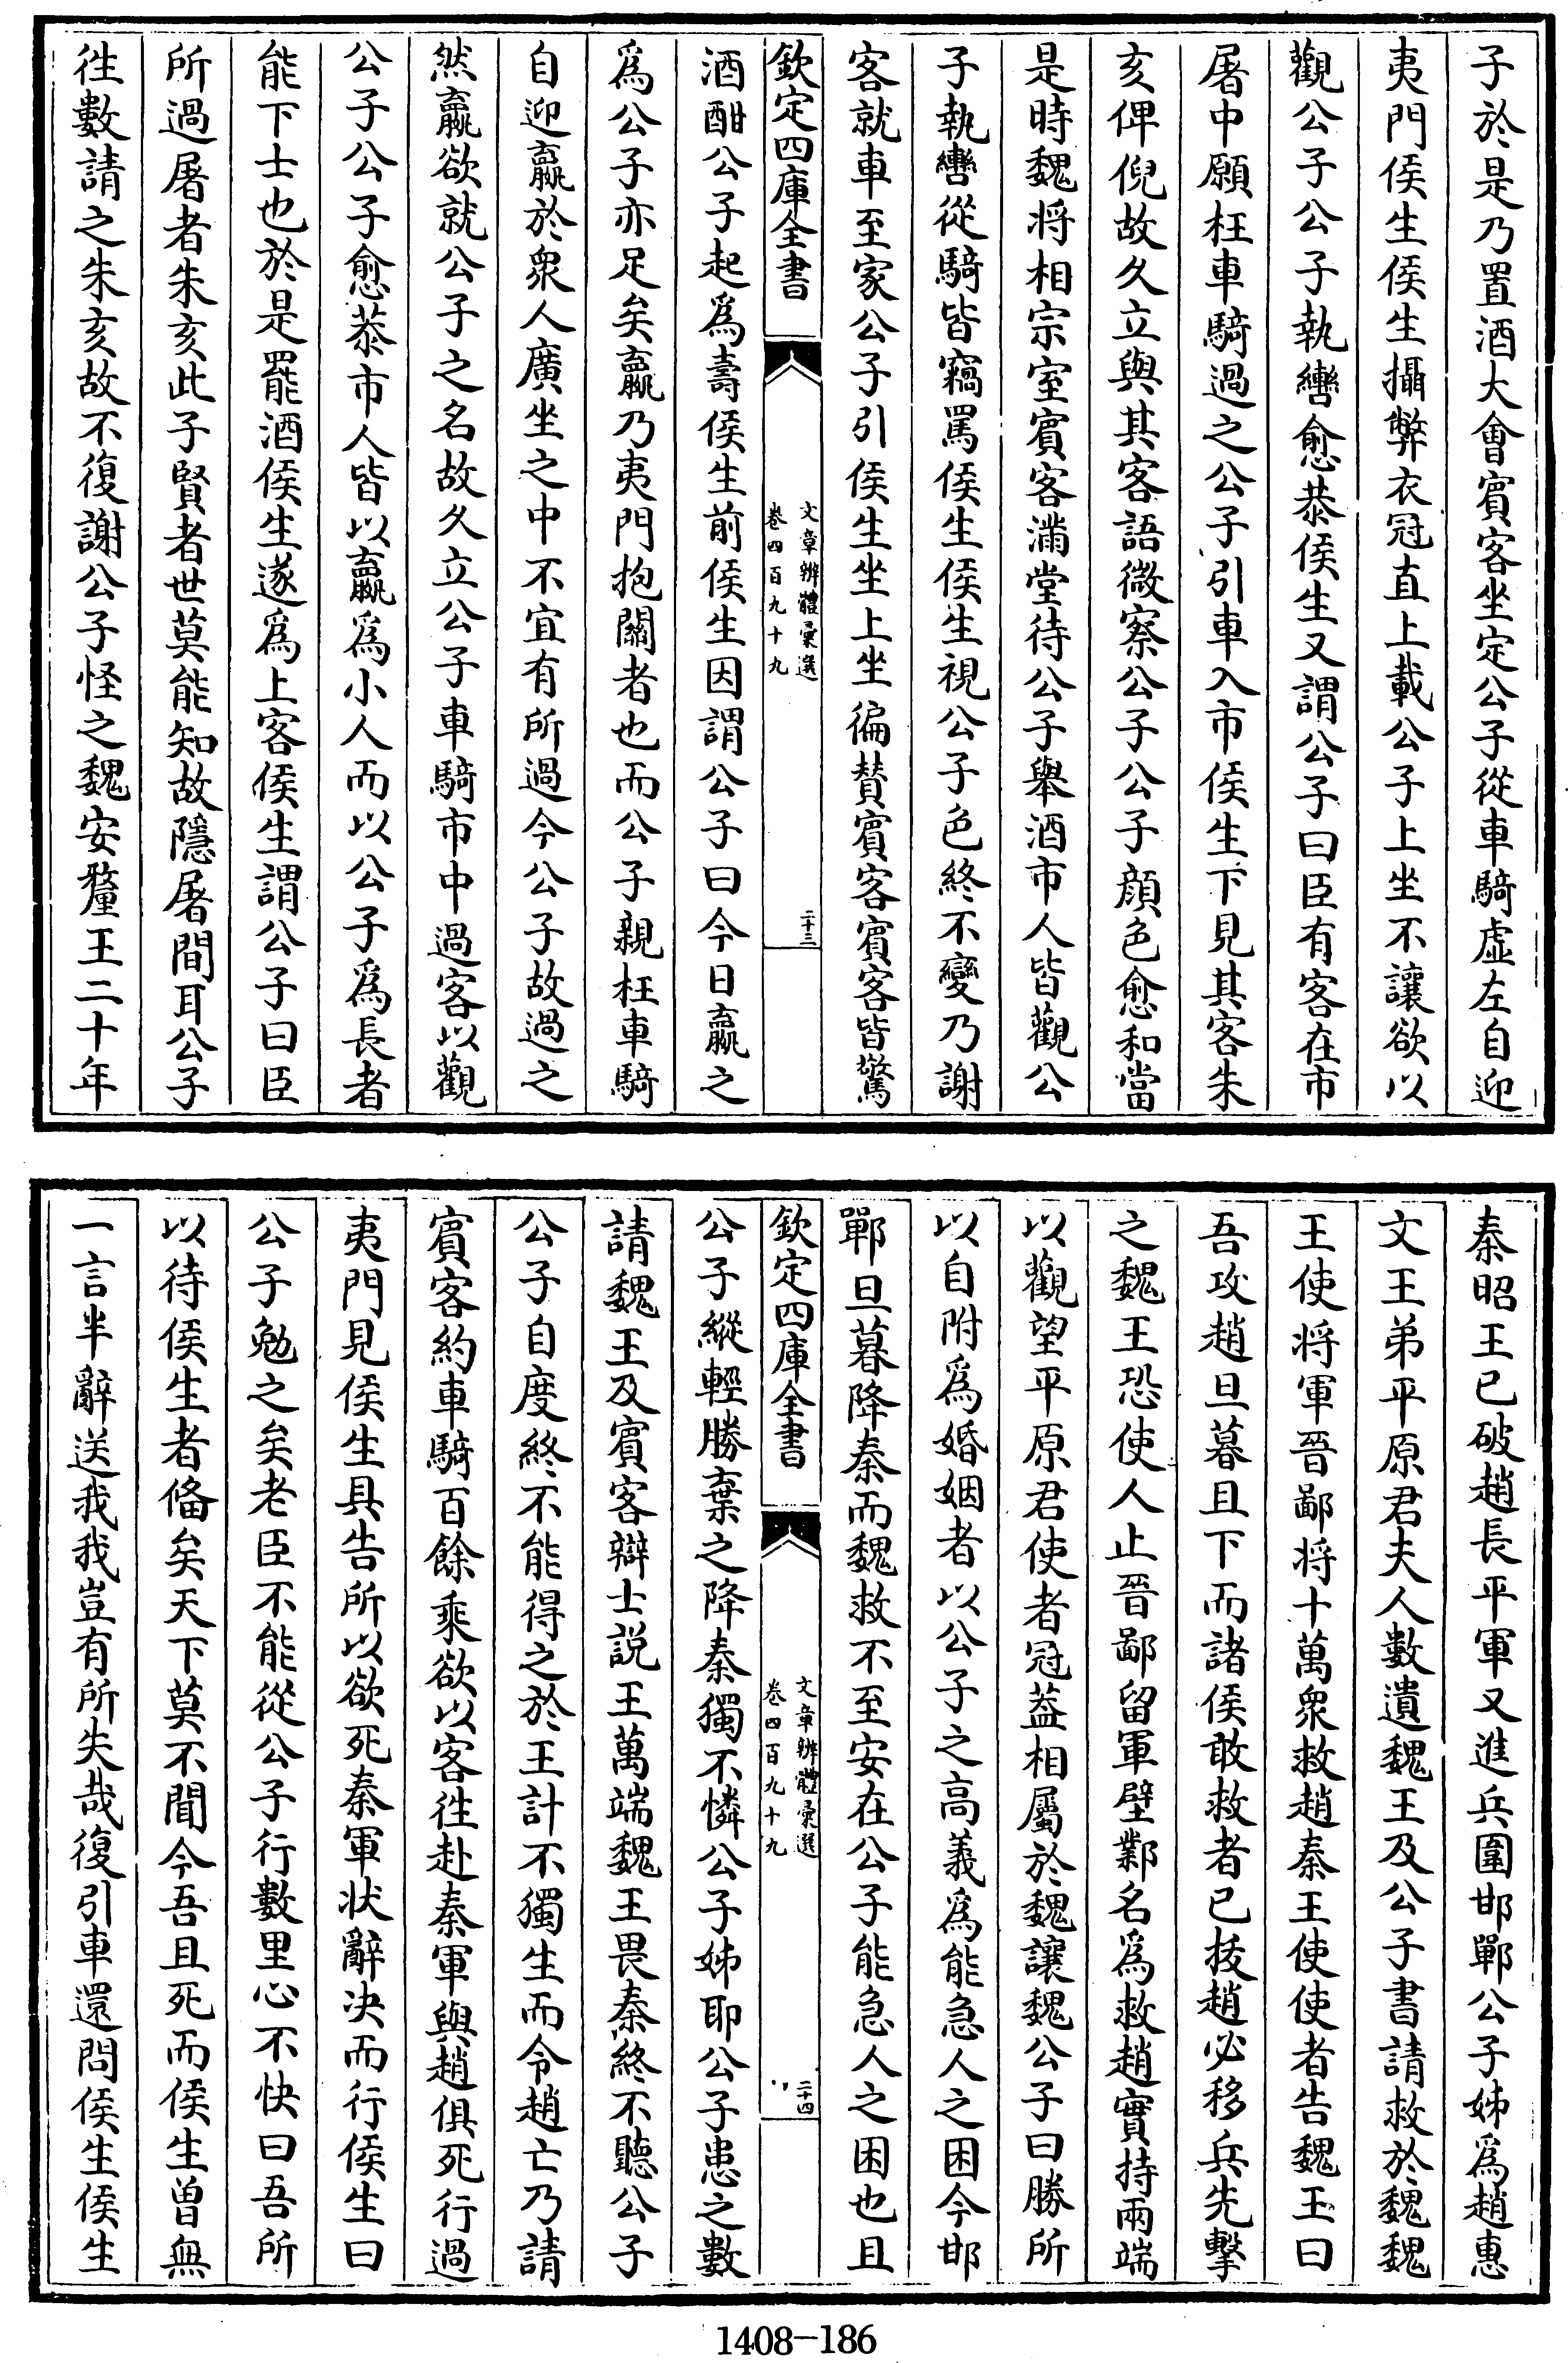 子於是乃置酒大會賓客坐定公子從車騎虛左自迎
夷門侯生侯生攝弊衣冠直上載公子上坐不讓欲以
觀公子公子執轡愈恭侯生又謂公子曰臣有客在市
屠中願枉車騎過之公子引車入市侯生下見其客朱
亥俾倪故久立與其客語微察公子公子顔色愈和當
是時魏将相宗室賓客滿堂待公子舉酒市人皆觀公
子執轡從騎皆竊罵侯生侯生視公子色終不變乃謝
客就車至家公子引侯生坐上坐徧賛賓客賓客皆驚
欽定四庫全書
文章辨體彙選
卷四百九十九
二十三
酒酣公子起爲壽侯生前侯生因謂公子曰今日嬴之
爲公子亦足矣嬴乃夷門抱關者也而公子親枉車騎
自迎嬴於衆人廣坐之中不宜有所過今公子故過之
然嬴欲就公子之名故久立公子車騎市中過客以觀
公子公子愈恭市人皆以嬴爲小人而以公子爲長者
能下士也於是罷酒侯生遂爲上客侯生謂公子曰臣
所過屠者朱亥此子賢者世莫能知故隱屠間耳公子
徃數請之朱亥故不復謝公子怪之魏安釐王二十年
秦昭王已破趙長平軍又進兵圍邯鄲公子姊爲趙惠
文王弟平原君夫人數遺魏王及公子書請救於魏魏
王使将軍晉鄙将十萬衆救趙秦王使使者告魏王曰
吾攻趙旦暮且下而諸侯敢救者已拔趙必移兵先擊
之魏王恐使人止晉鄙留軍壁鄴名爲救趙實持兩端
以觀望平原君使者冠葢相屬於魏讓魏公子曰勝所
以自附爲婚姻者以公子之高義爲能急人之困今邯
鄲旦暮降秦而魏救不至安在公子能急人之困也且
欽定四庫全書
文章辨體彙選
卷四百九十九
二十四
公子縱輕勝棄之降秦獨不憐公子姊耶公子患之數
請魏王及賓客辯士説王萬端魏王畏秦終不聽公子
公子自度終不能得之於王計不獨生而令趙亡乃請
賓客約車騎百餘乘欲以客徃赴秦軍與趙俱死行過
夷門見侯生具告所以欲死秦軍状辭决而行侯生曰
公子勉之矣老臣不能從公子行數里心不快曰吾所
以待侯生者偹矣天下莫不聞今吾且死而侯生曾無
一言半辭送我我豈有所失哉復引車還問侯生侯生
1408-186